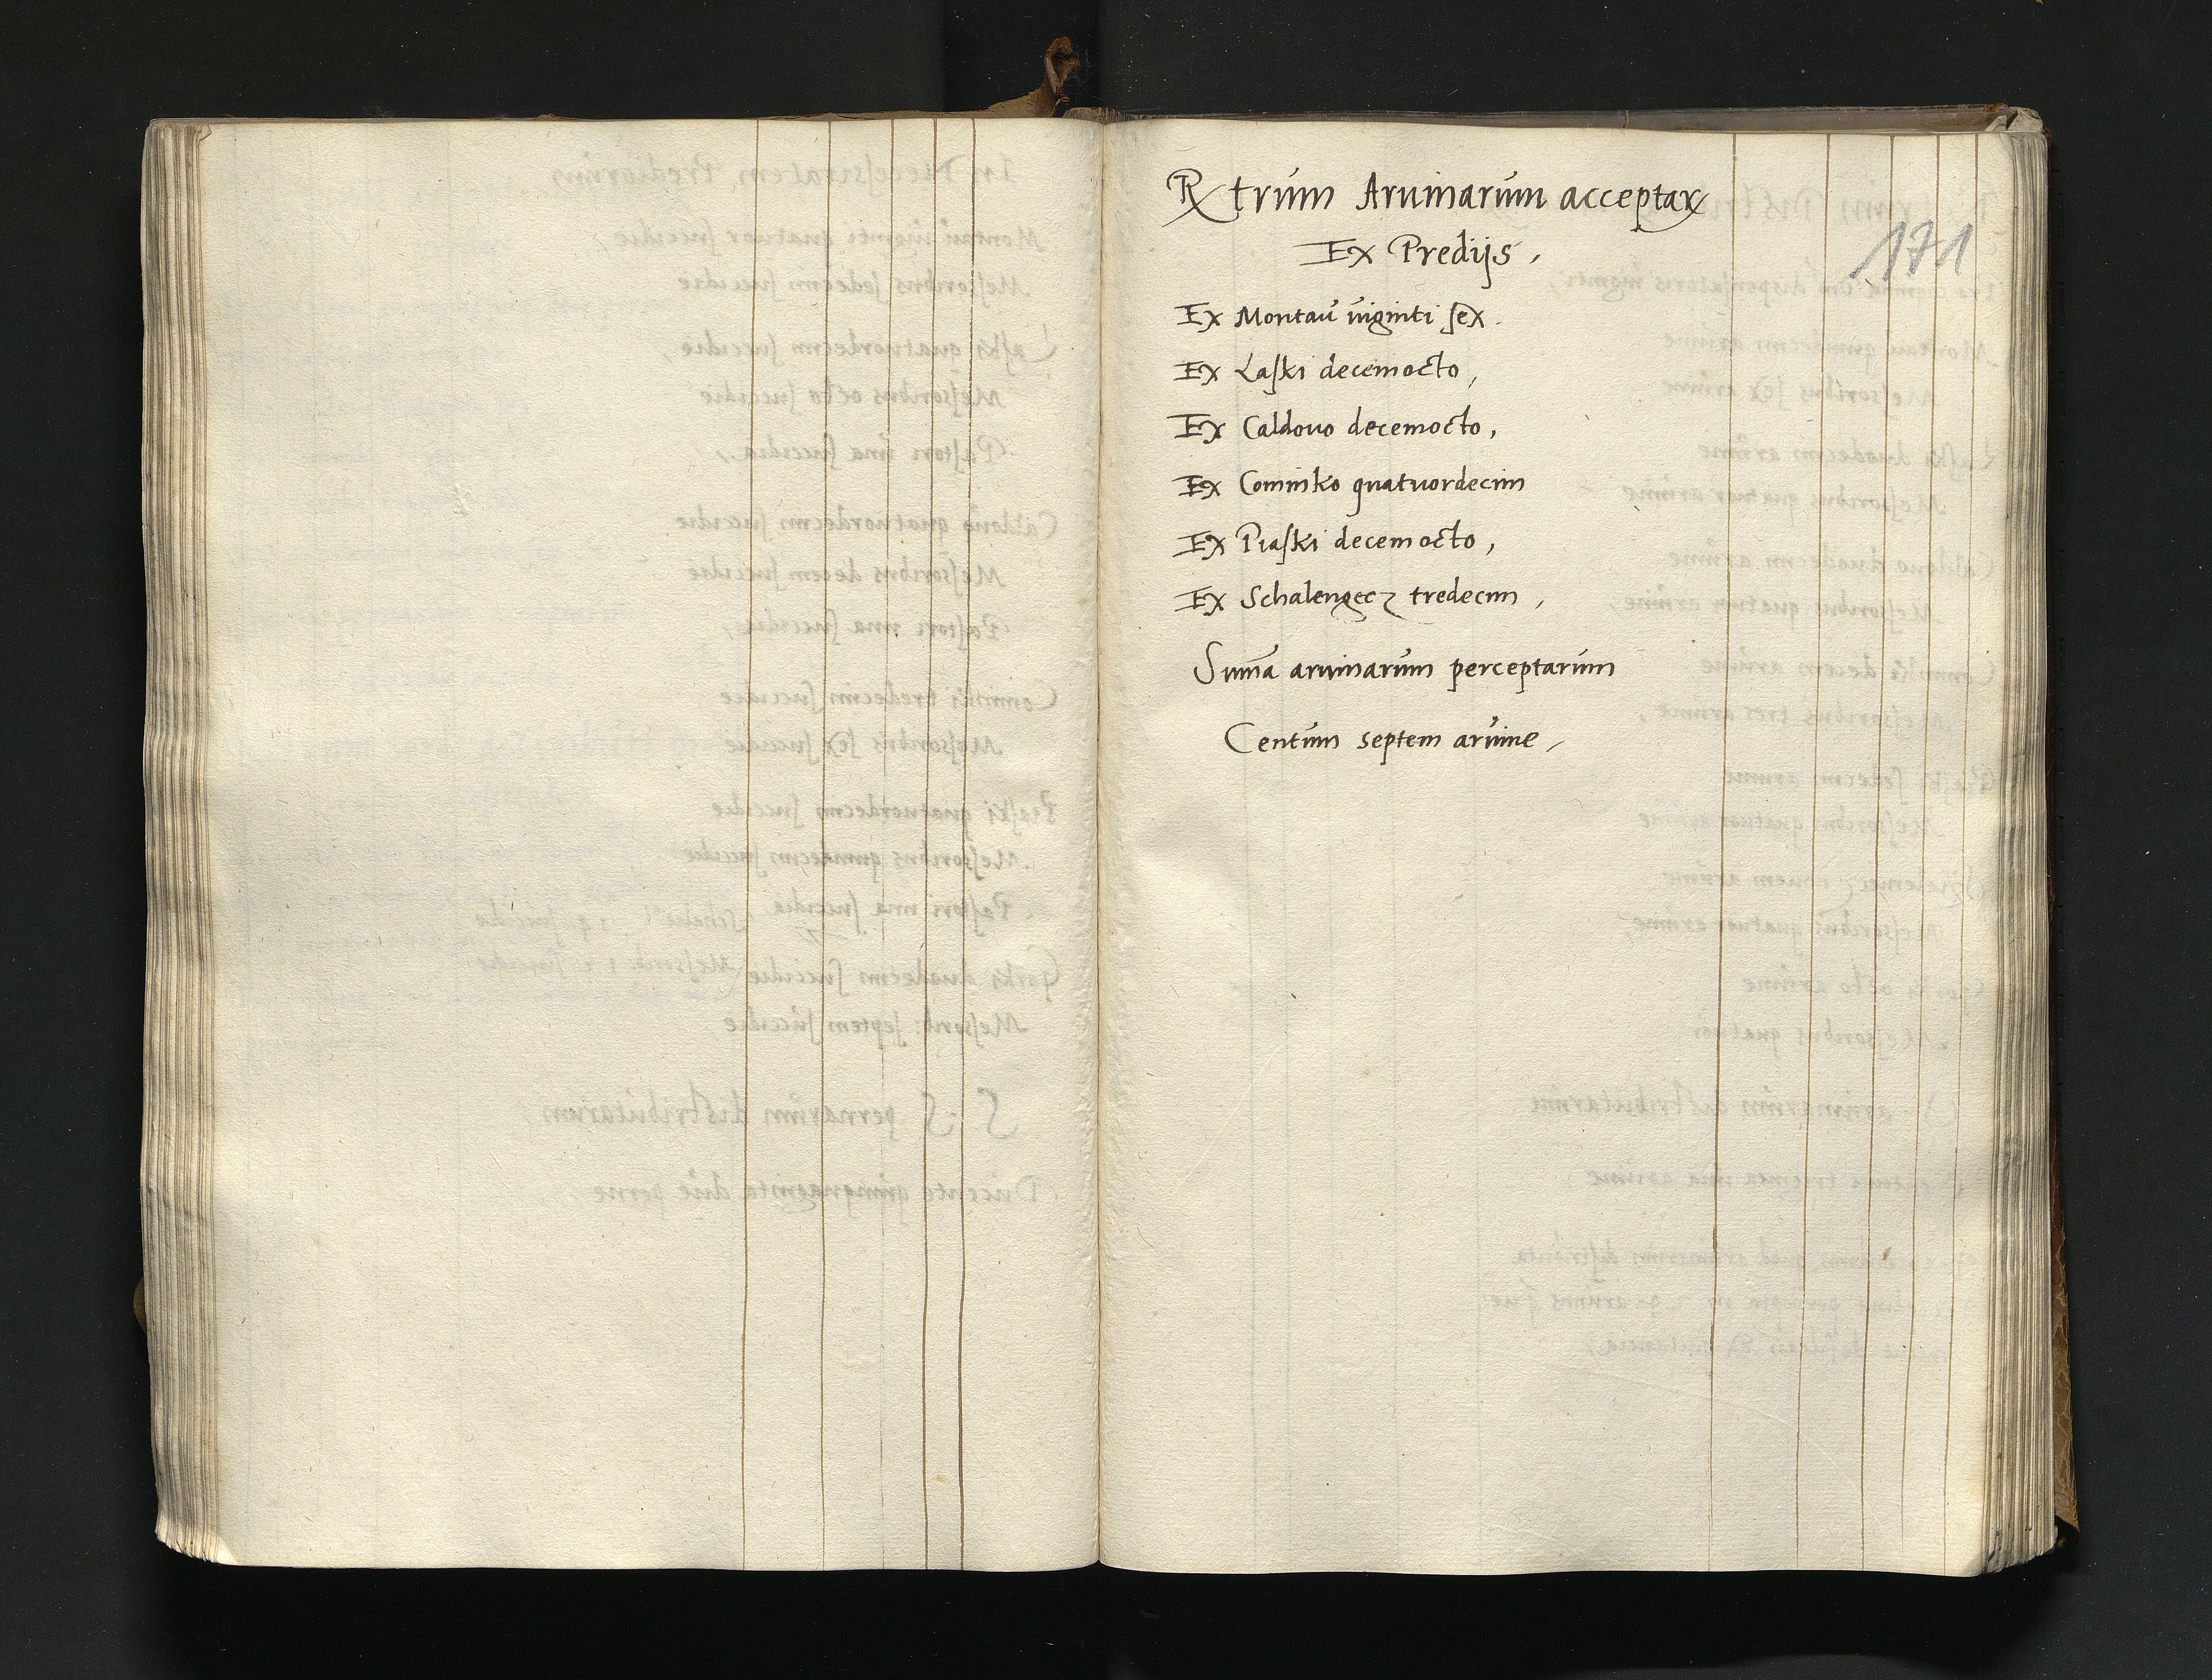 Rtrum Aruinarum acceptar
Ex Predijs,
171
Ex Montau uiginti sex.
Ex Laski decemocto,
Ex Caldouo decemocto,
Ex Cominko quatuordecim
Ex Piaski decemocto,
Ex Schalengecz tredecim,
Suma aruinarum perceptarum
Centum septem aruine,